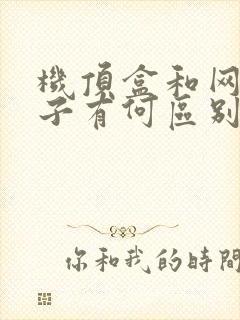 機頂盒和网
子有何區别
你和我的時間